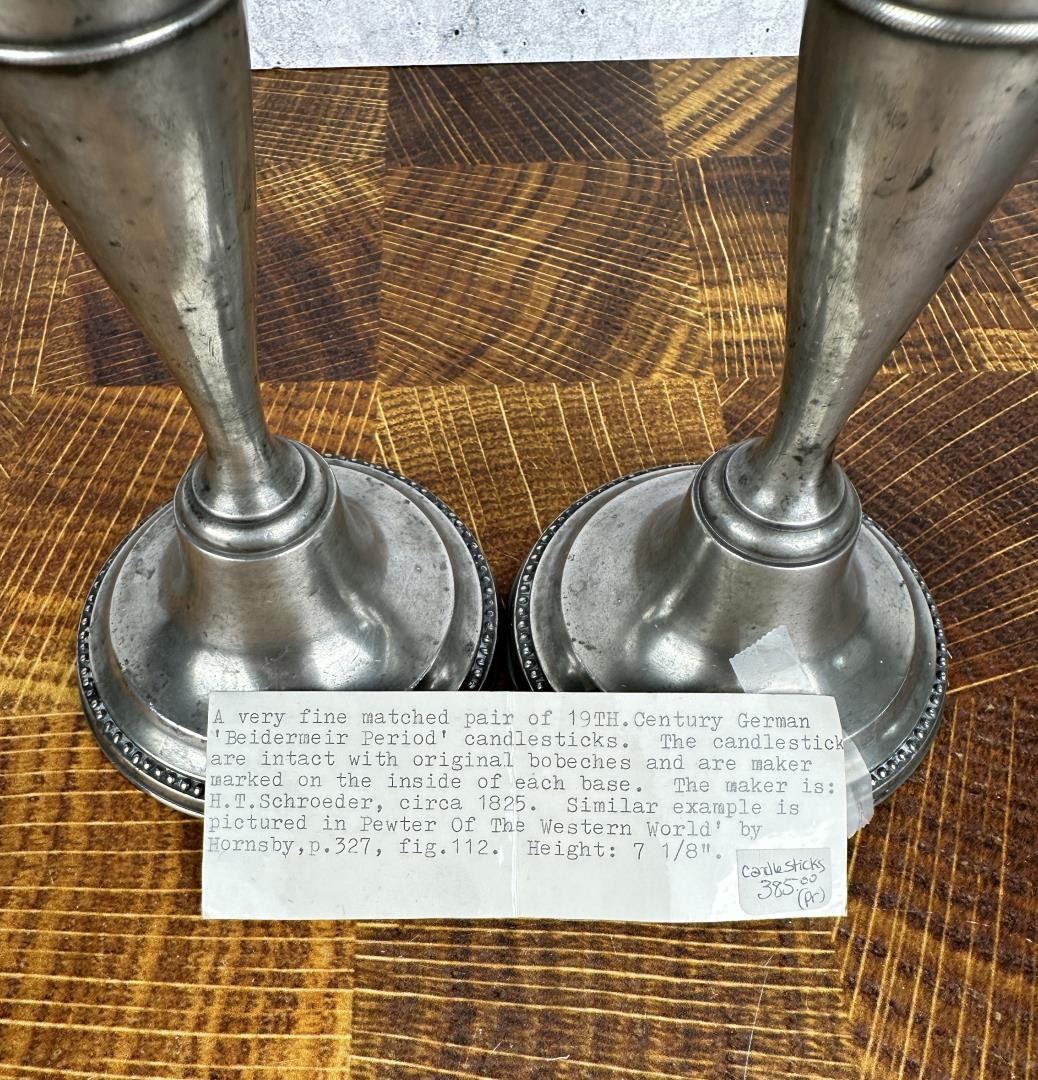 A very fine matched pair of 19TH.Century German
'Beidermeir Period' candlesticks. The candlestick
are intact with original bobeches and are maker
marked on the inside of each base. The maker is:
H.T.Schroeder, circa 1825. Similar example is
pictured in Pewter Of The Western World' by
Hornsby,p.327, fig.112. Height: 7 1/8".
Candlesticks
385.00
(pr)